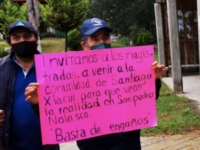 Invitamos a los magis-
trados, a venir a la
comunidad de Santiago
Xiacui, para que vean
la realidad en San pedro
Nolasco.
Basta de engaños